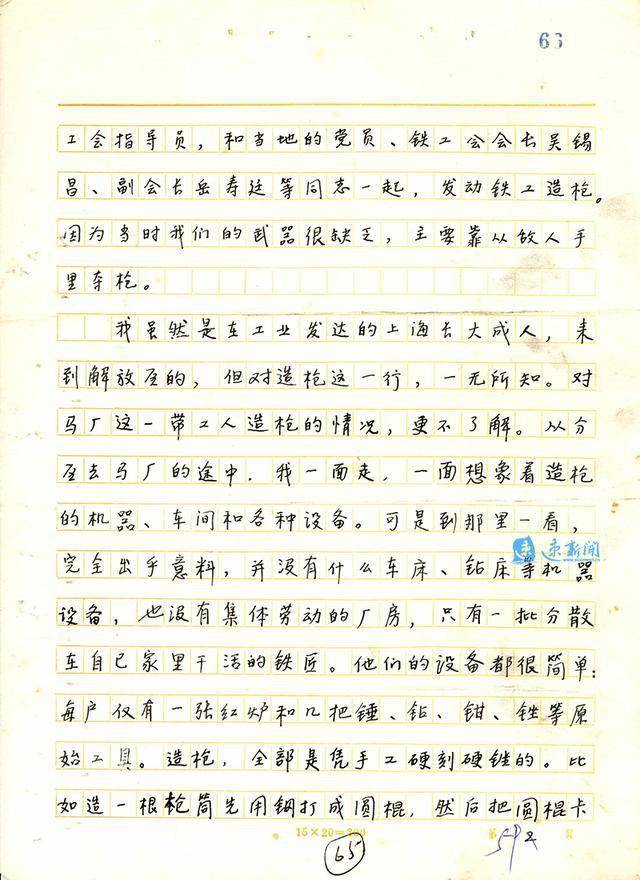 66
工会指导员，和当地的党员、铁工会会长吴锡
昌、副会长岳寿廷等同志一起，发动铁工造枪。
因为当时我们的武器很缺乏，主要靠从敌人手
里夺枪。
我虽然是在工业发达的上海长大成人，来
到解放区的，但对造枪这一行，一无所知。对
马厂这一带工人造枪的情况，更不了解。从分
区去马厂的途中，我一面走，一面想象着造枪
的机器、车间和各种设备。可是到那里一看，
来新闻
完全出乎意料，并没有什么车床、钻床等机器
设备，也没有集体劳动的厂房，只有一批分散
在自己家里干活的铁匠。他们的设备都很简单：
每户仅有一张红炉和几把锤、钻、钳、锉等原
始工具。造枪，全部是凭手工硬刻硬锉的。比
如造一根枪筒先用钢打成圆棍，然后把圆棍卡
15×20=300
第 页
65